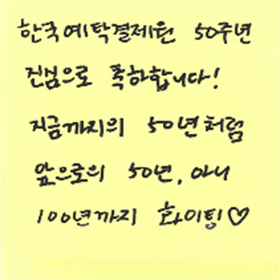 한국예탁결제원 50주년
진심으로 축하합니다!
지금까지의 50년처럼
앞으로의 50년, 아니
100년까지 화이팅♡